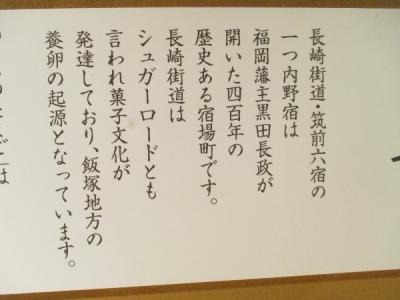 長崎街道・筑前六宿の
一つ内野宿は
福岡藩主黒田長政が
開いた四百年の
歴史ある宿場町です。
長崎街道は
シュガーロードとも
言われ菓子文化が
発達しており、飯塚地方の
養卵の起源となっています。